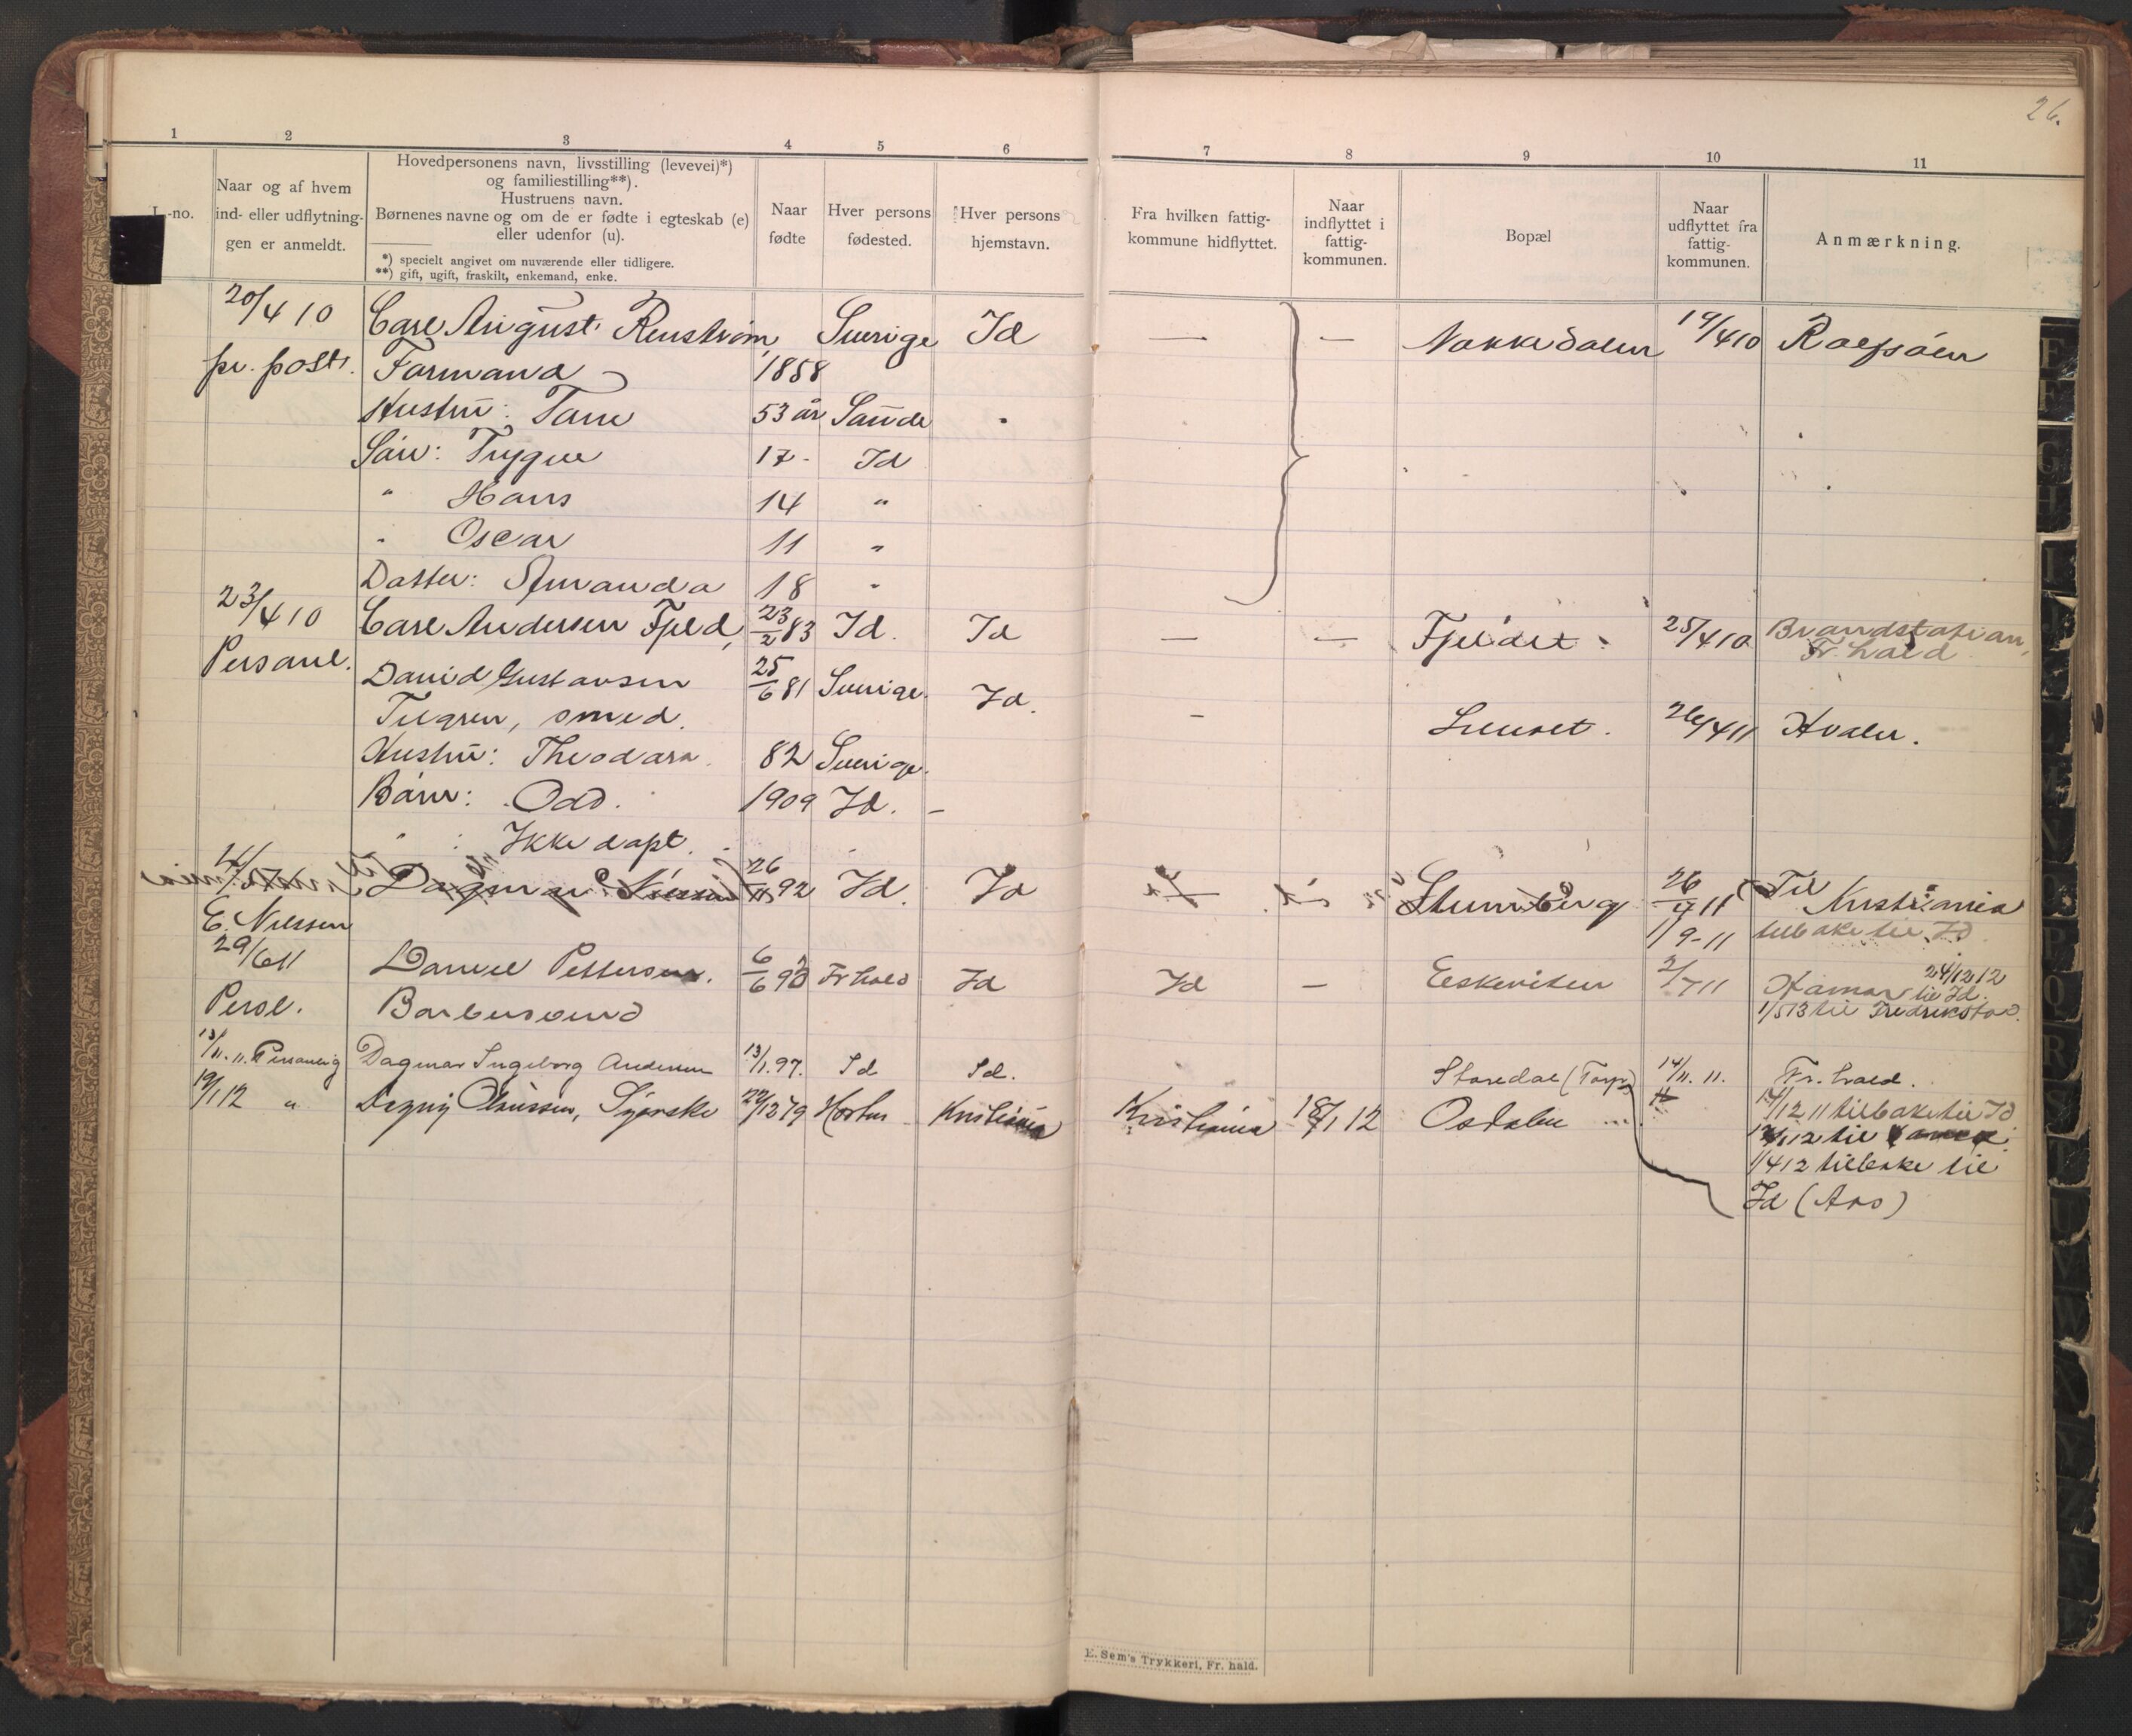 26.
1 2 3 4 5 6 7 8 9 10 11
-no.
Naar og af hvem
ind- eller udflytnin-
gen er anmeldt.
Hovedpersonens navn, livsstilling (levevei)*)
og familiestilling**).
Hustruens navn.
Børnenes navne og om de er fødte i egteskab (e)
eller udenfor (u).
*) specielt angivet om nuværende eller tidligere.
**) gift, ugift, fraskilt, enkemand, enke.
Naar
fødte
Hver persons
fødested.
Hver persons
hjemstavn.
Fra hvilken fattig-
kommune hidflyttet.
Naar
indflyttet i
fattig-
kommunen.
Bopæl
Naar
udflyttet fra
fattig-
kommunen.
Anmærkning.
20/4 10 Carl August Renström Sverige Id — — Nokkedalen 19/4 10 Rolfsöen
pr. post. Formand 1858
Hustru: Tane 53 år Sande "
Sön: Trygve 17 - Id
" Hans 14 "
" Oscar 11 "
Datter: Amanda 18 "
23/4 10 Carl Andersen Fjeld, 23/2 83 Id. Id — — Fjeldet 25/4 10 Brandstation,
Fr.hald
Personl. David Gustavsen 25/6 81 Sverige. Id.
smed. — 26/4 11 Hvaler.
Hustru: Theodora. 82 Sverige.
Börn: Odd. 1909 Id. —
" : Ikke döpt.
Dagmar Nilssen 26/11 92 Id. Id — 26/4 11 Til Kristiania
E. Nilssen 1/9-11 tilbake til Id
29/6 11 Daniel Pettersen. 6/6 90 Fr hald Id Id — Eskeviken 2/7 11 Hamar 24/12 12
til Id.
Persl. Barbersvend 1/5 13 til Fredrikstad.
13/11. 11. Personlig Dagmar Ingeborg Andersen 13/1. 97. Id Id. Staredal (Torp) 14/11. 11. Fr. hald.
19/1 12 " Dagny Olaussen, Syerske 22/12 79 Horten Kristiania Kristiania 18/1 12 Osdalen 14/12 11 tilbake til Id
1/4 12 tilbake til
Id (Aas)
E. Sem's Trykkeri, Fr. hald.